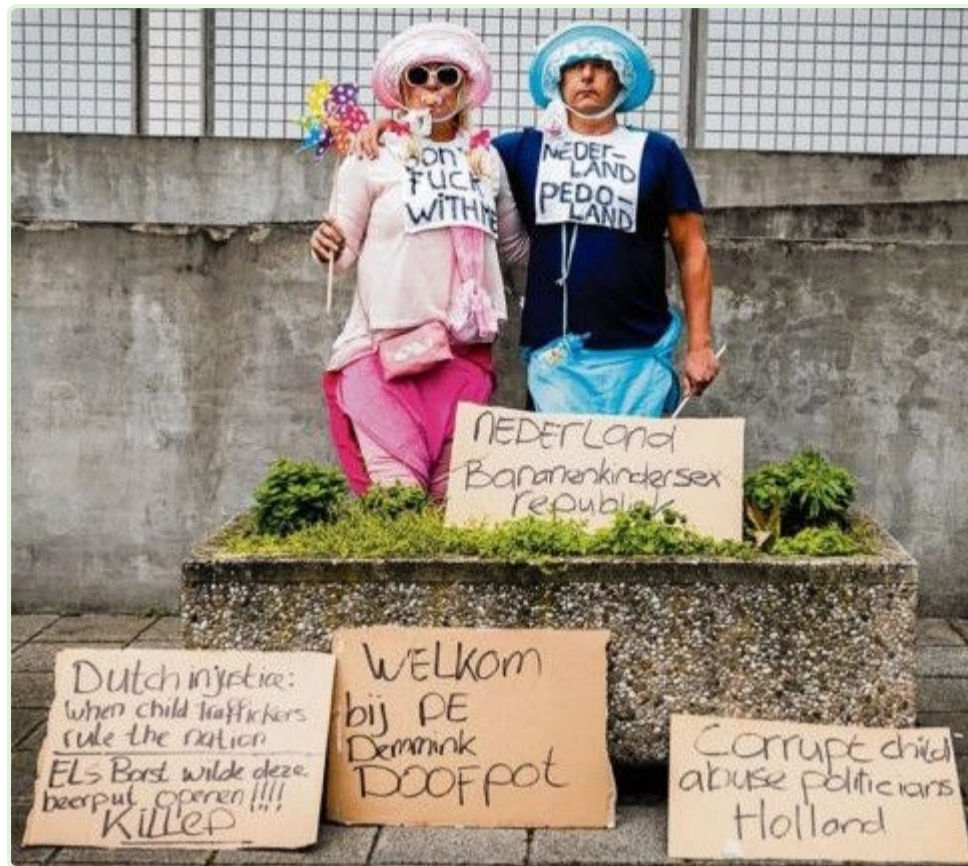 DON'T
FUCK
WITH ME
NEDER-
LAND
PEDO-
LAND
NEDERLand
Bananenkindersex
republiek
Dutch injustice:
when child traffickers
rule the nation
ELs Borst wilde deze
beerput openen!!!!
KILLED
WELKOM
bij DE
Demmink
DOOFpot
Corrupt child
abuse politicians
Holland